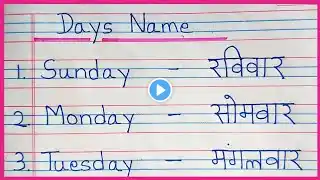 Days Name
1. Sunday - रविवार
2. Monday - सोमवार
3. Tuesday - मंगलवार